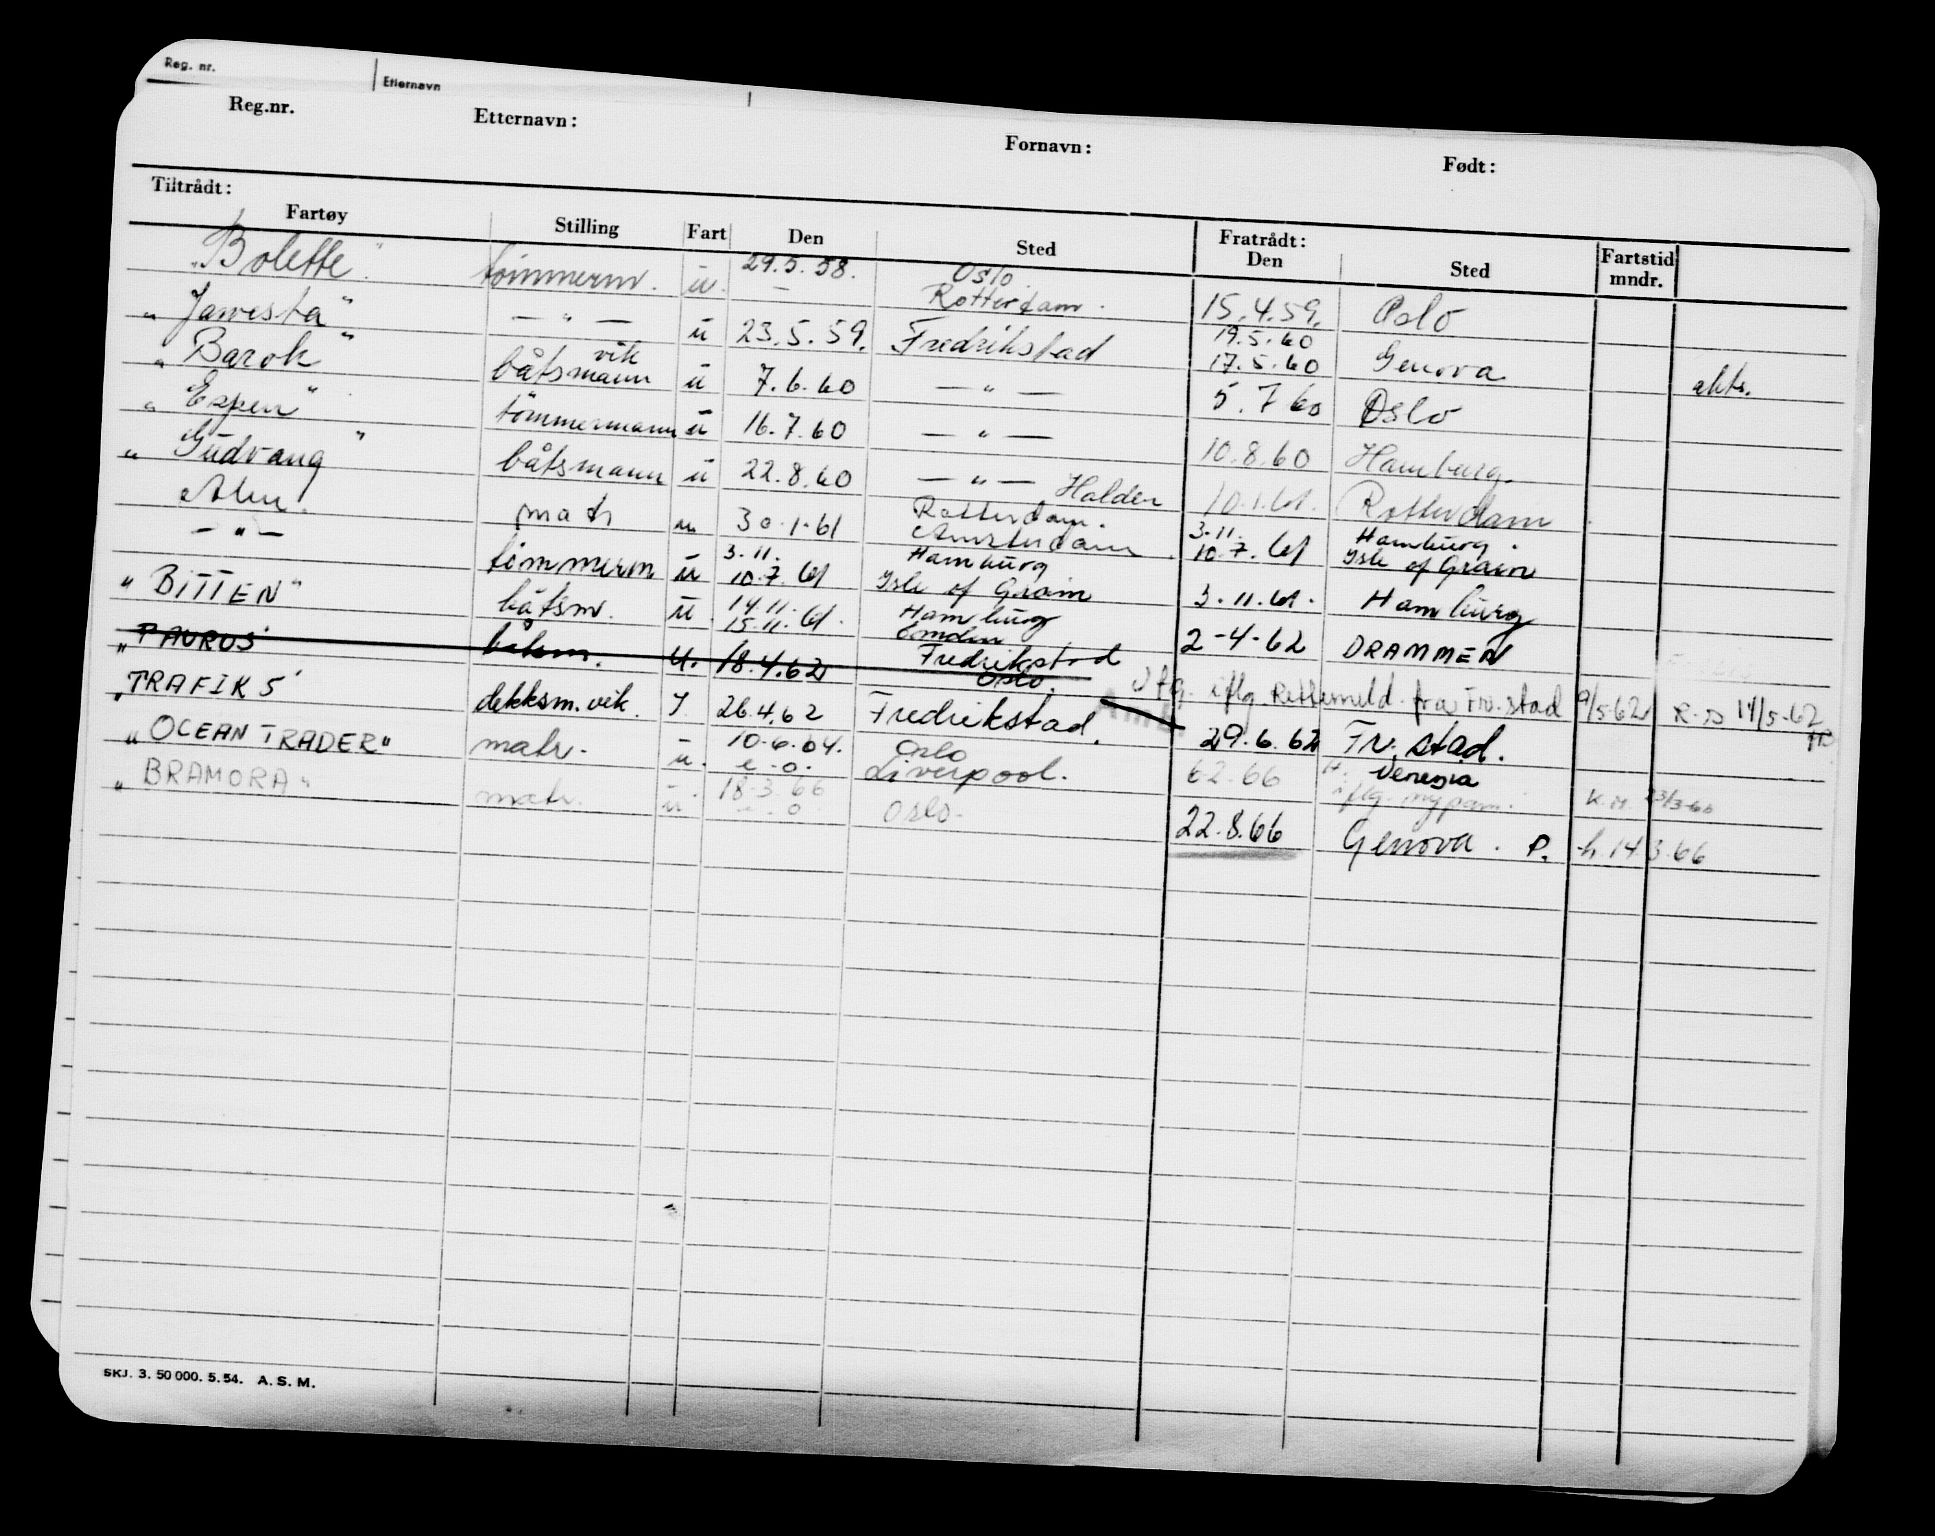 Reg. nr. Etternavn
Reg.nr. Etternavn: Fornavn: Født:
Tiltrådt: Fratrådt:
Fartøy Stilling Fart Den Sted Den Sted Fartstid mndr.
"Bolette" tömmerm. ü. 29.5.58. Oslo. Rotterdam. 15.4.59. Oslo
"Jawesta" — " — ü 23.5.59. Fredrikstad 19.5.60 17.5.60 Genova
"Barok" vik båtsmann ü 7.6.60 — " — 5.7.60 Oslo akts.
"Espen" tömmermann ü 16.7.60 — " — 10.8.60 Hamburg.
"Gudvang" båtsmann ü 22.8.60 — " — Halden 10.1.61. Rotterdam
Alm. matr u 30.1.61 Rotterdam. Amsterdam. 3.11. 10.7.61 Hamburg. Isle of Grain
— " — tömmerm ü 3.11. 10.7.61 Hamburg Isle of Grain 3.11.61. Hamburg
"BITTEN" båtsm. ü. 14.11. 15.11.61. Hamburg Emden 2-4-62 DRAMMEN
"TAURUS" båtsm. u. 18.4.62 Fredrikstad Oslo. iflg. Rettemeld. fra Fr.stad 9/5-62 14/5-62
"TRAFIK 5" dekksm. vik. I 26.4.62 Fredrikstad. 29.6.62 Fr.stad.
"OCEAN TRADER" matr. ü. 10.6.64. e.o. Oslo Liverpool. 6.2.66 Venezia iflg. K.M. 23/3-66
"BRAMORA" matr. ü 18.3.66 e.o. Oslo. 22.8.66 Genova. P. h. 14.3.66
SKJ. 3. 50 000. 5. 54. A. S. M.